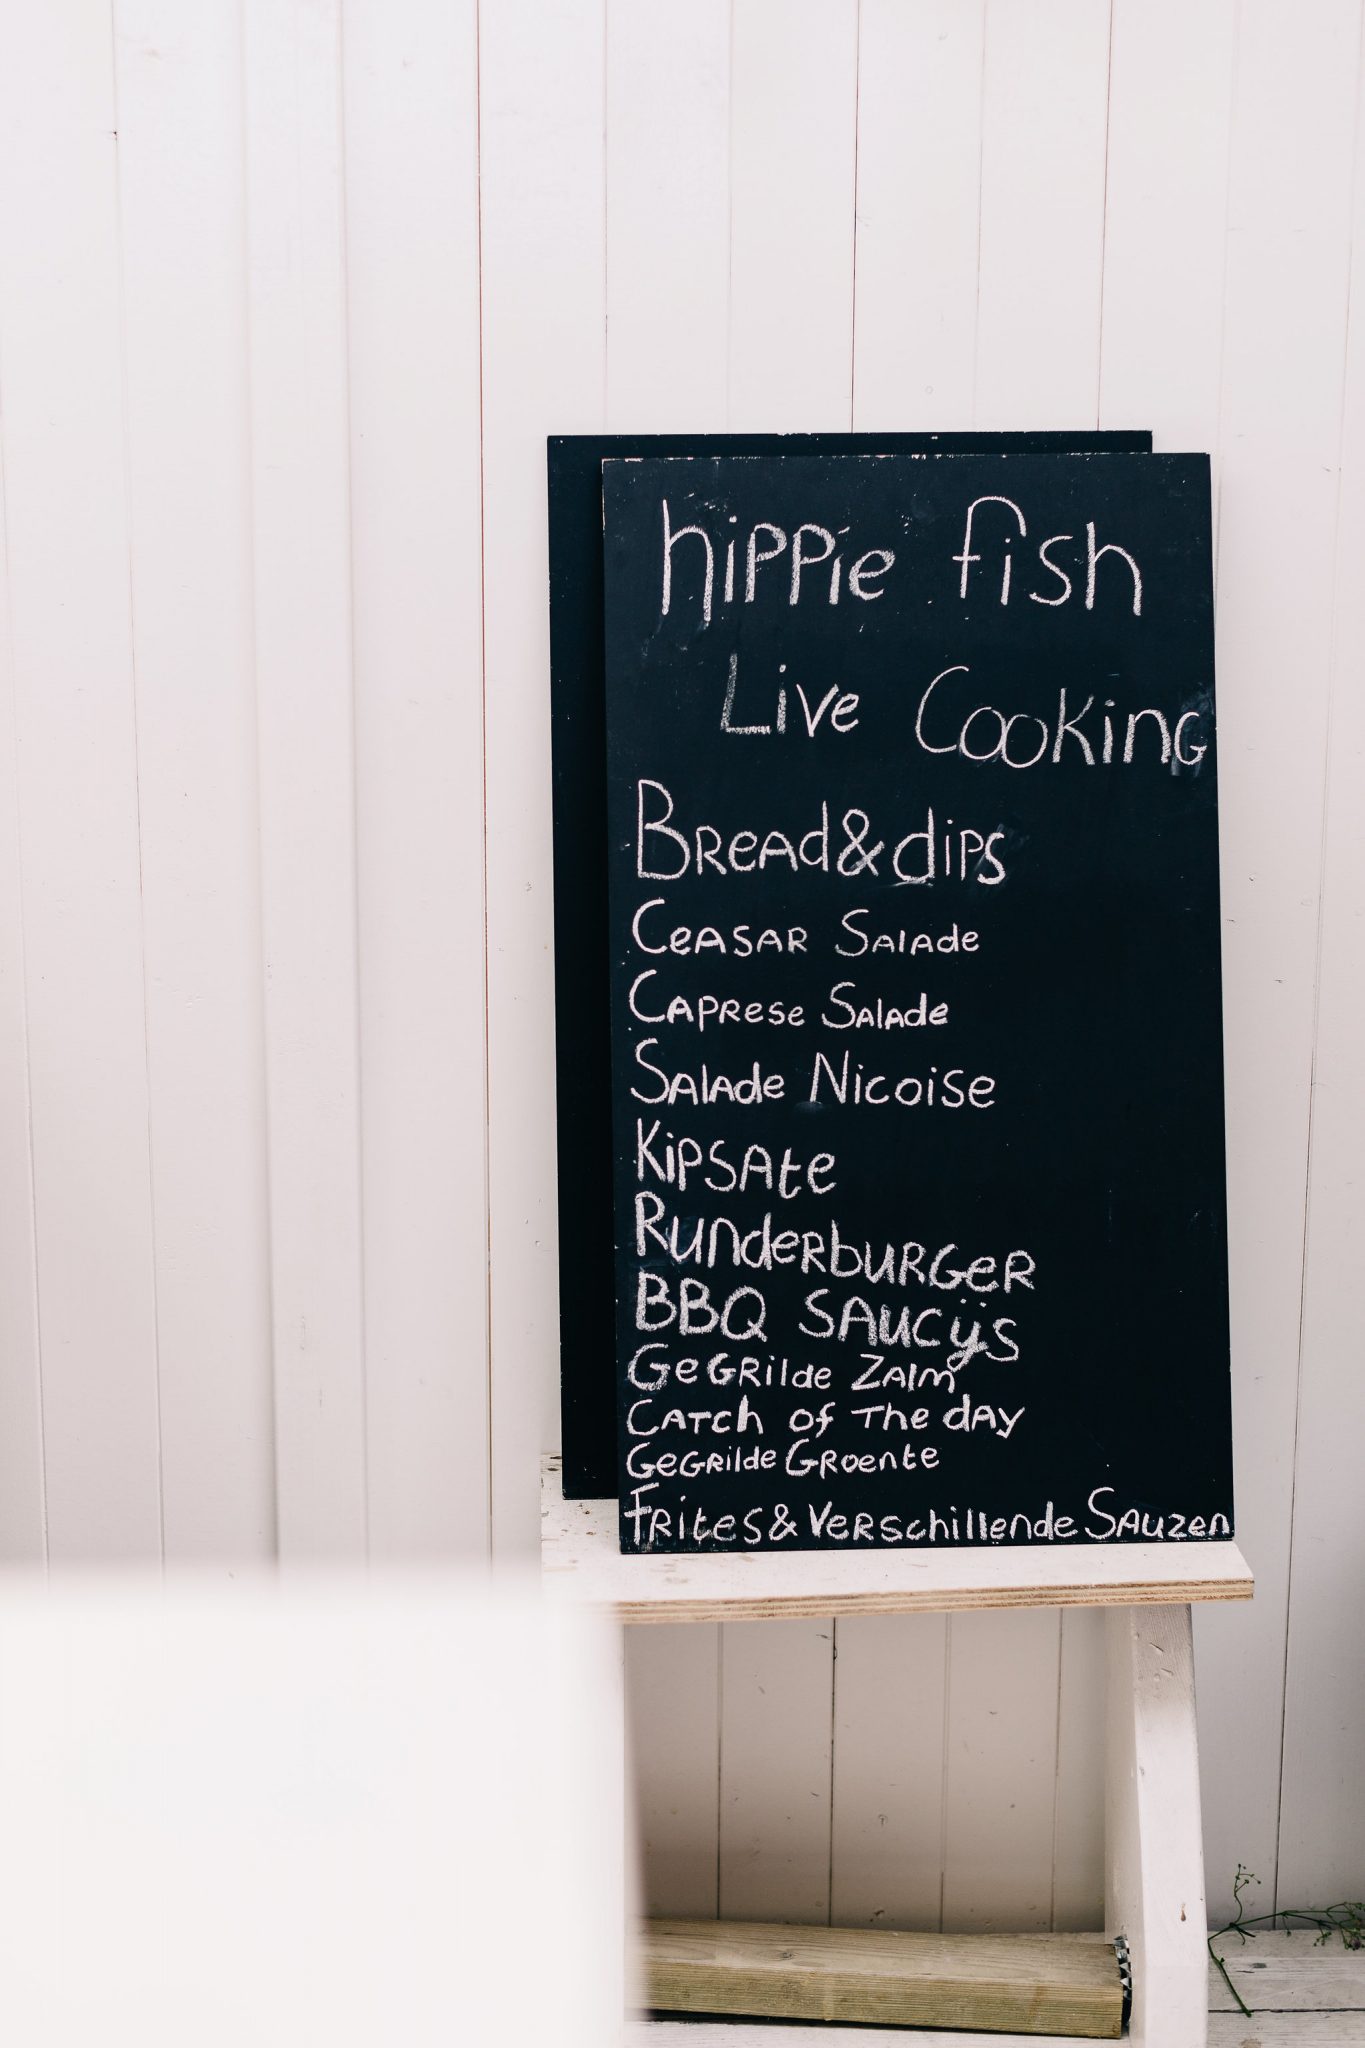 hippie fish
Live Cooking
Bread & dips
Ceasar Salade
Caprese Salade
Salade Nicoise
Kipsate
Runderburger
BBQ Saucijs
Gegrilde Zalm
Catch of the day
Gegrilde Groente
Frites & Verschillende Sauzen